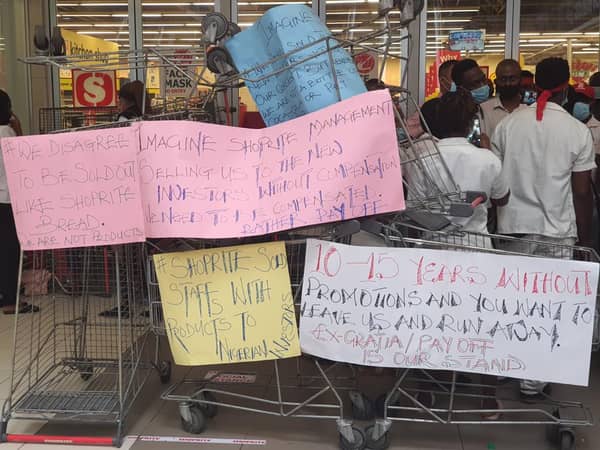 IMAGINE
SOLD
OR PAY
kitchen
$
FACE
MASK
#WE DISAGREE
TO BE SOLD OUT
LIKE SHOPRITE
BREAD.
WE ARE NOT PRODUCTS
IMAGINE SHOPRITE MANAGEMENT
SELLING US TO THE NEW
INVESTORS WITHOUT COMPENSATION
NEED TO BE COMPENSATED.
RATHER PAY OFF
#SHOPRITE SOLD
STAFFS WITH
PRODUCTS TO
NIGERIAN INVESTORS
10-15 YEARS WITHOUT
PROMOTIONS AND YOU WANT TO
LEAVE US AND RUN AWAY
EX-GRATIA/PAY OFF
IS OUR STAND